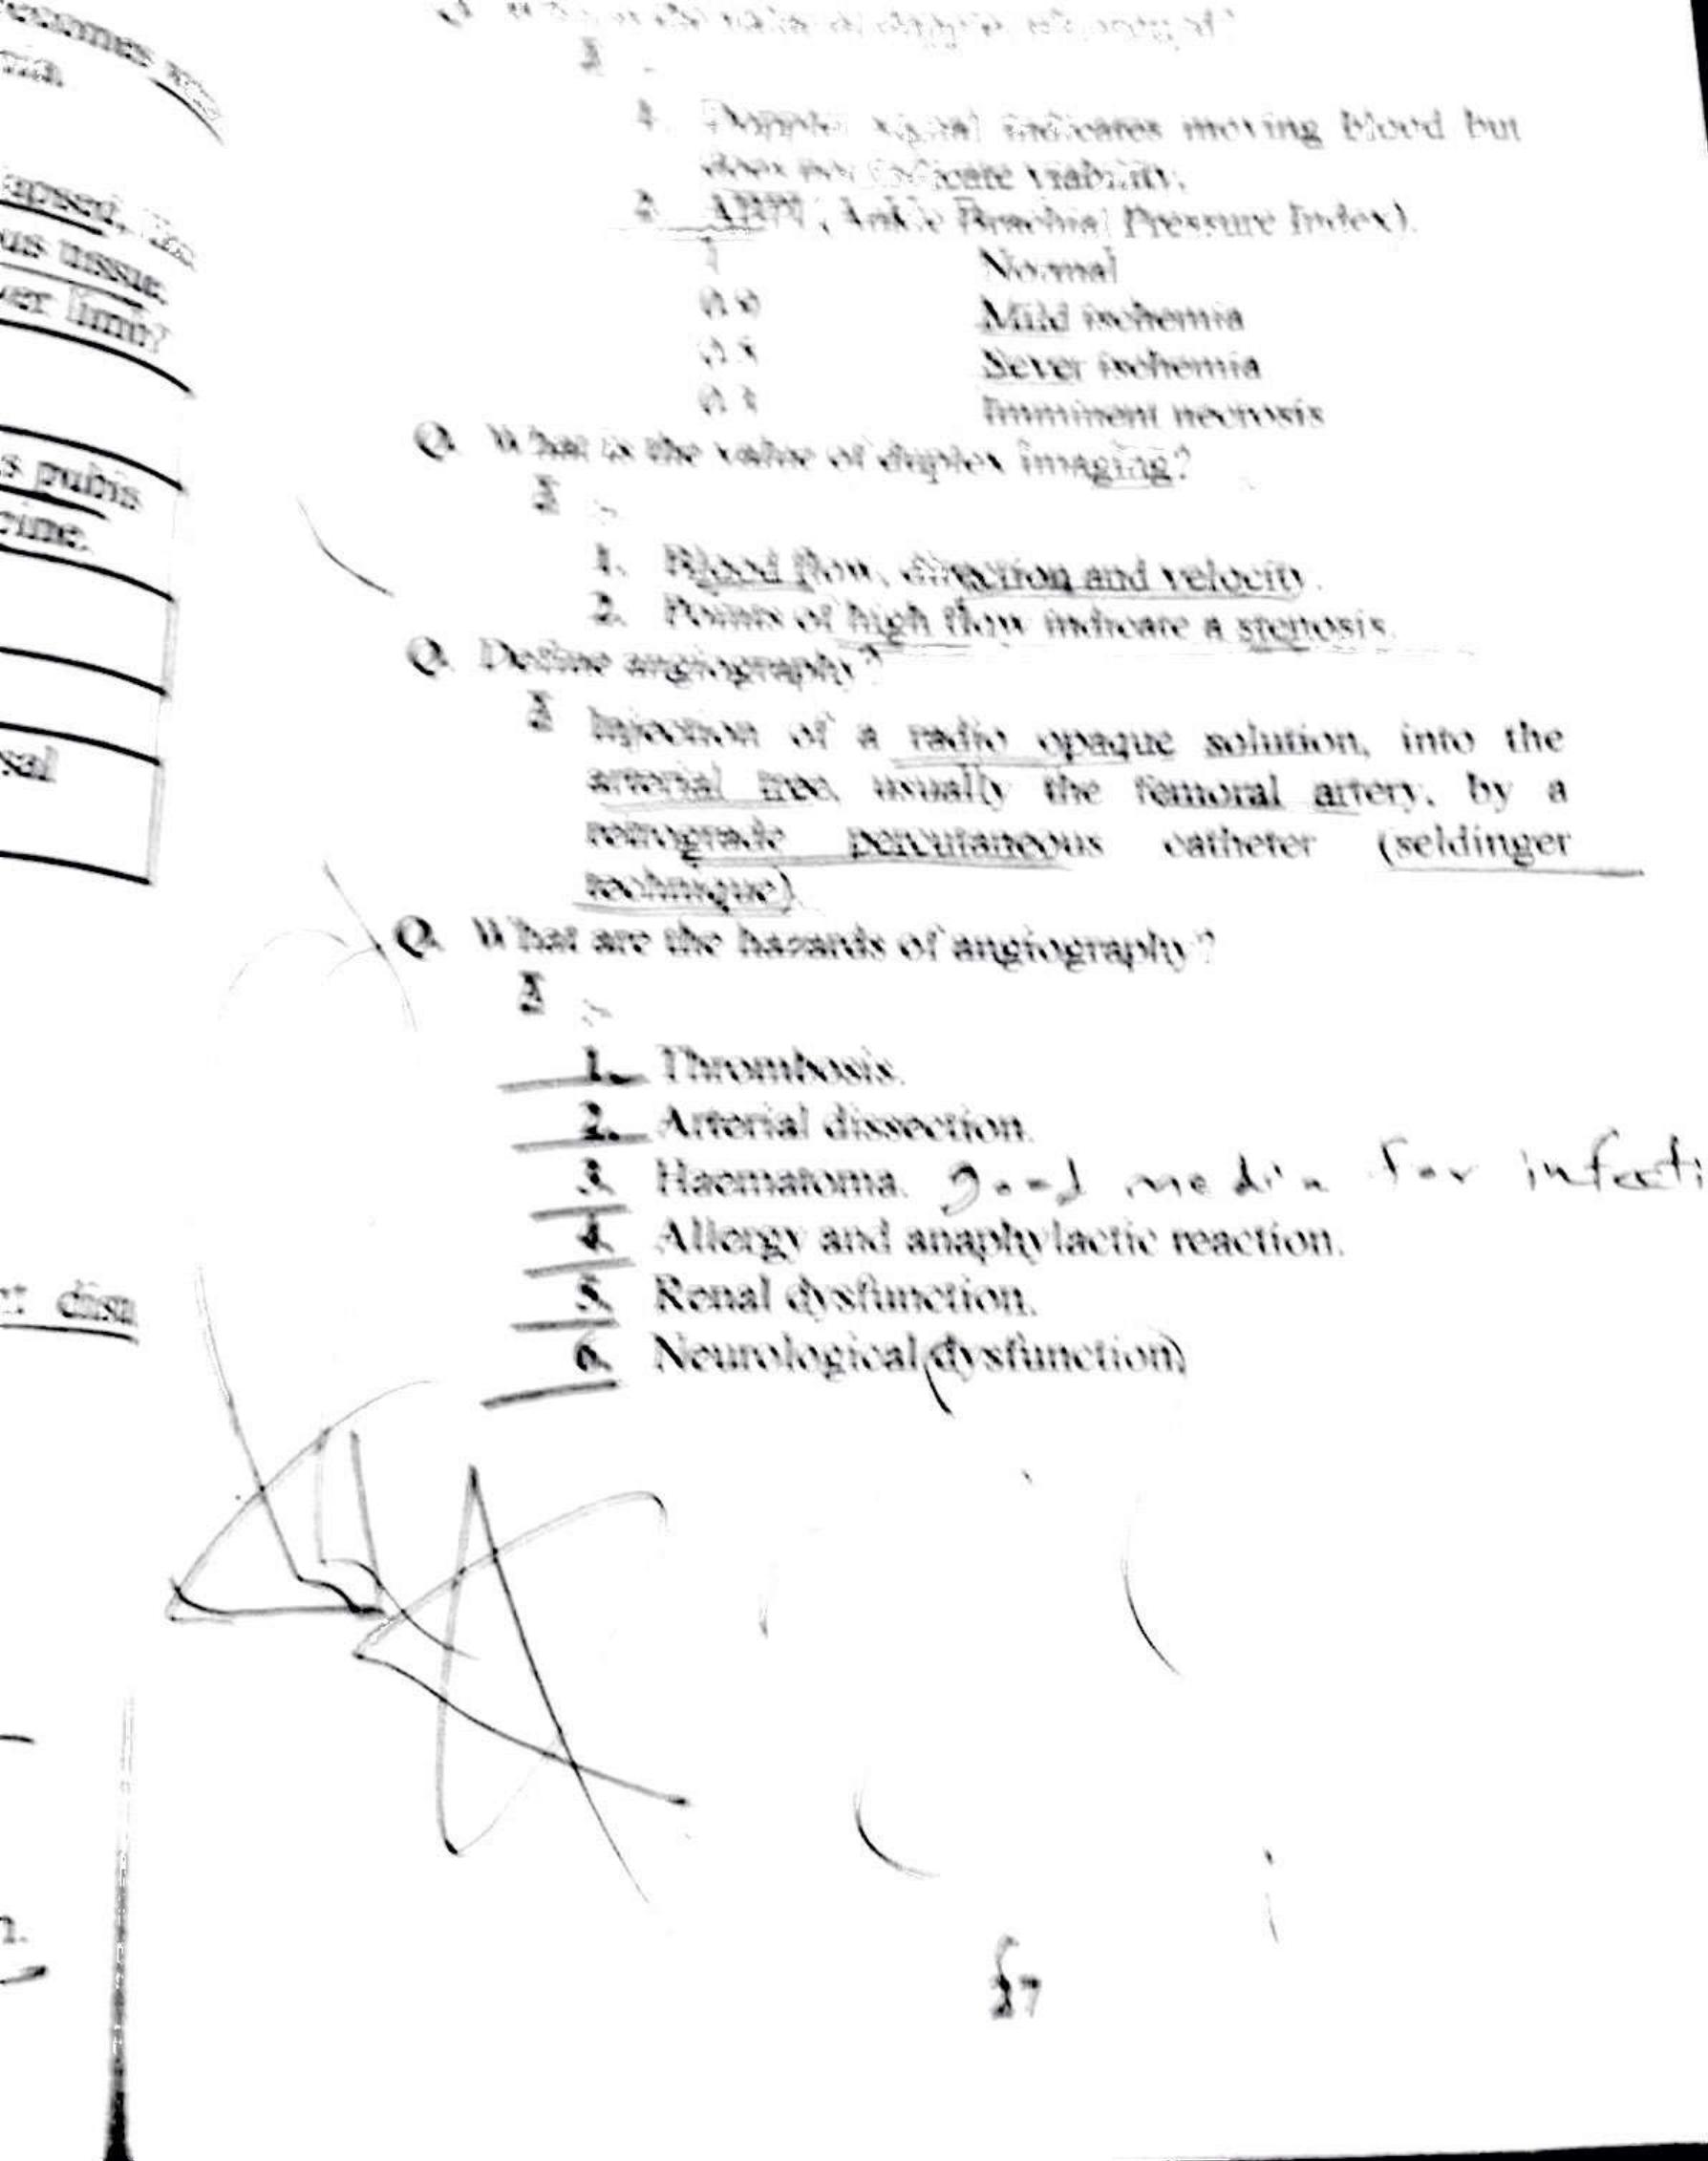 us tissue.
ver limb?
s pubis
sal
disn
signal indicates moving blood but
indicate viability.
2. ABPI (Ankle Brachial Pressure Index).
1 Normal
Mild ischemia
Sever ischemia
Imminent necrosis
Q. What is the value of duplex imaging?
1. Blood flow, direction and velocity.
2. Points of high flow indicate a stenosis.
Q. Define angiography?
Injection of a radio opaque solution, into the
arterial tree, usually the femoral artery, by a
retrograde percutaneous catheter (seldinger
technique).
Q. What are the hazards of angiography?
1. Thrombosis.
2. Arterial dissection.
3. Haematoma. good media for infecti
4. Allergy and anaphylactic reaction.
5. Renal dysfunction.
6. Neurological (dysfunction)
27